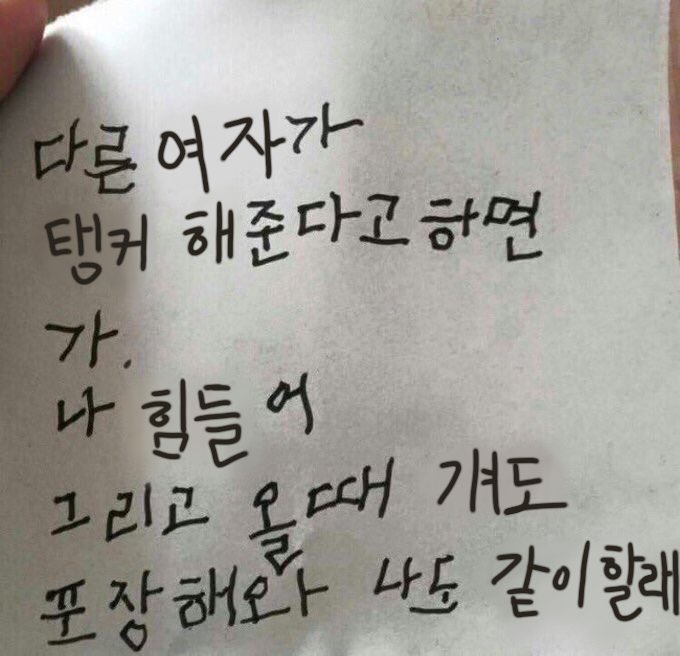 다른 여자가
탱커 해준다고하면
가.
나 힘들어
그리고 올때 걔도
포장해와 나도 같이할래